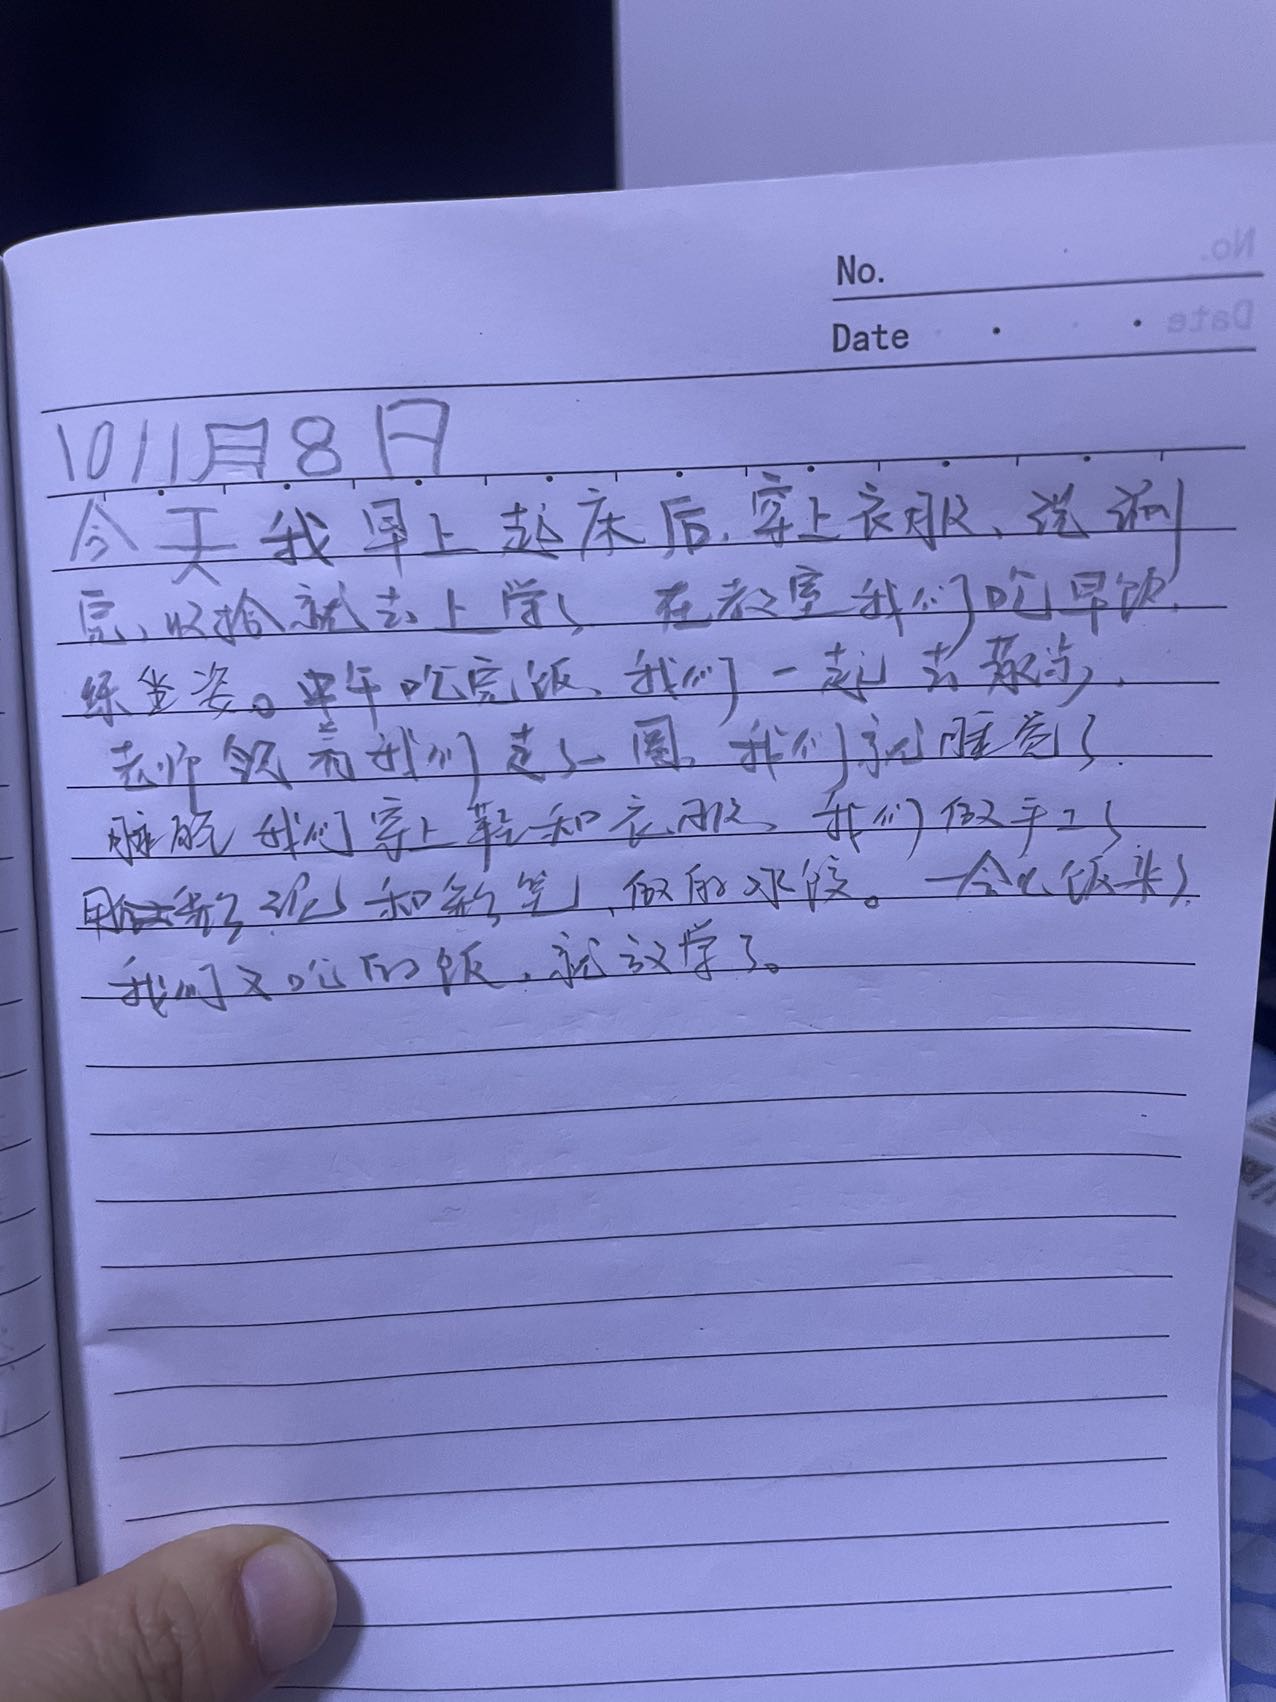 No.
Date
1011月8日
今天我早上起床后,穿上衣服、洗漱
完、收拾就去上学了 在教室我们吃早饭,
练坐姿。中午吃完饭、我们一起去散步,
老师领着我们走了一圈,我们就睡觉了
睡完我们穿上鞋和衣服、我们做手工了
用彩泥和彩笔,做的水饺。一会儿饭来了
我们又吃的饭,就放学了。